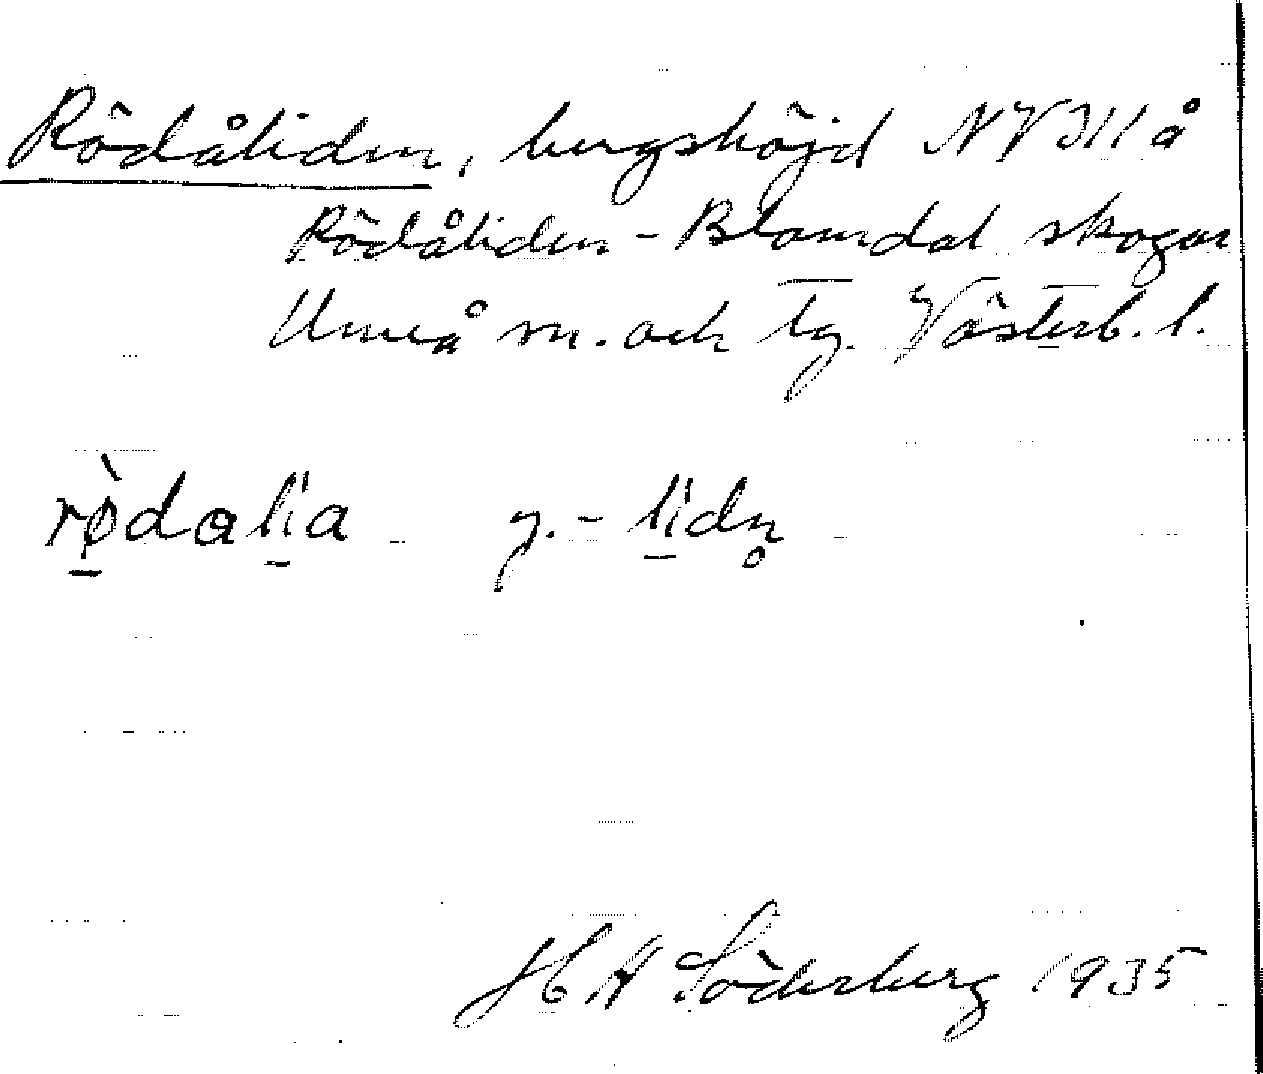 Rödåliden, bergshöjd NV III å
Rödåliden - Blomdal skogar
Umeå sn. och tg. Västerb. l.
rò̱dali̱a y. - li̱dn̥
H Söderberg 1935